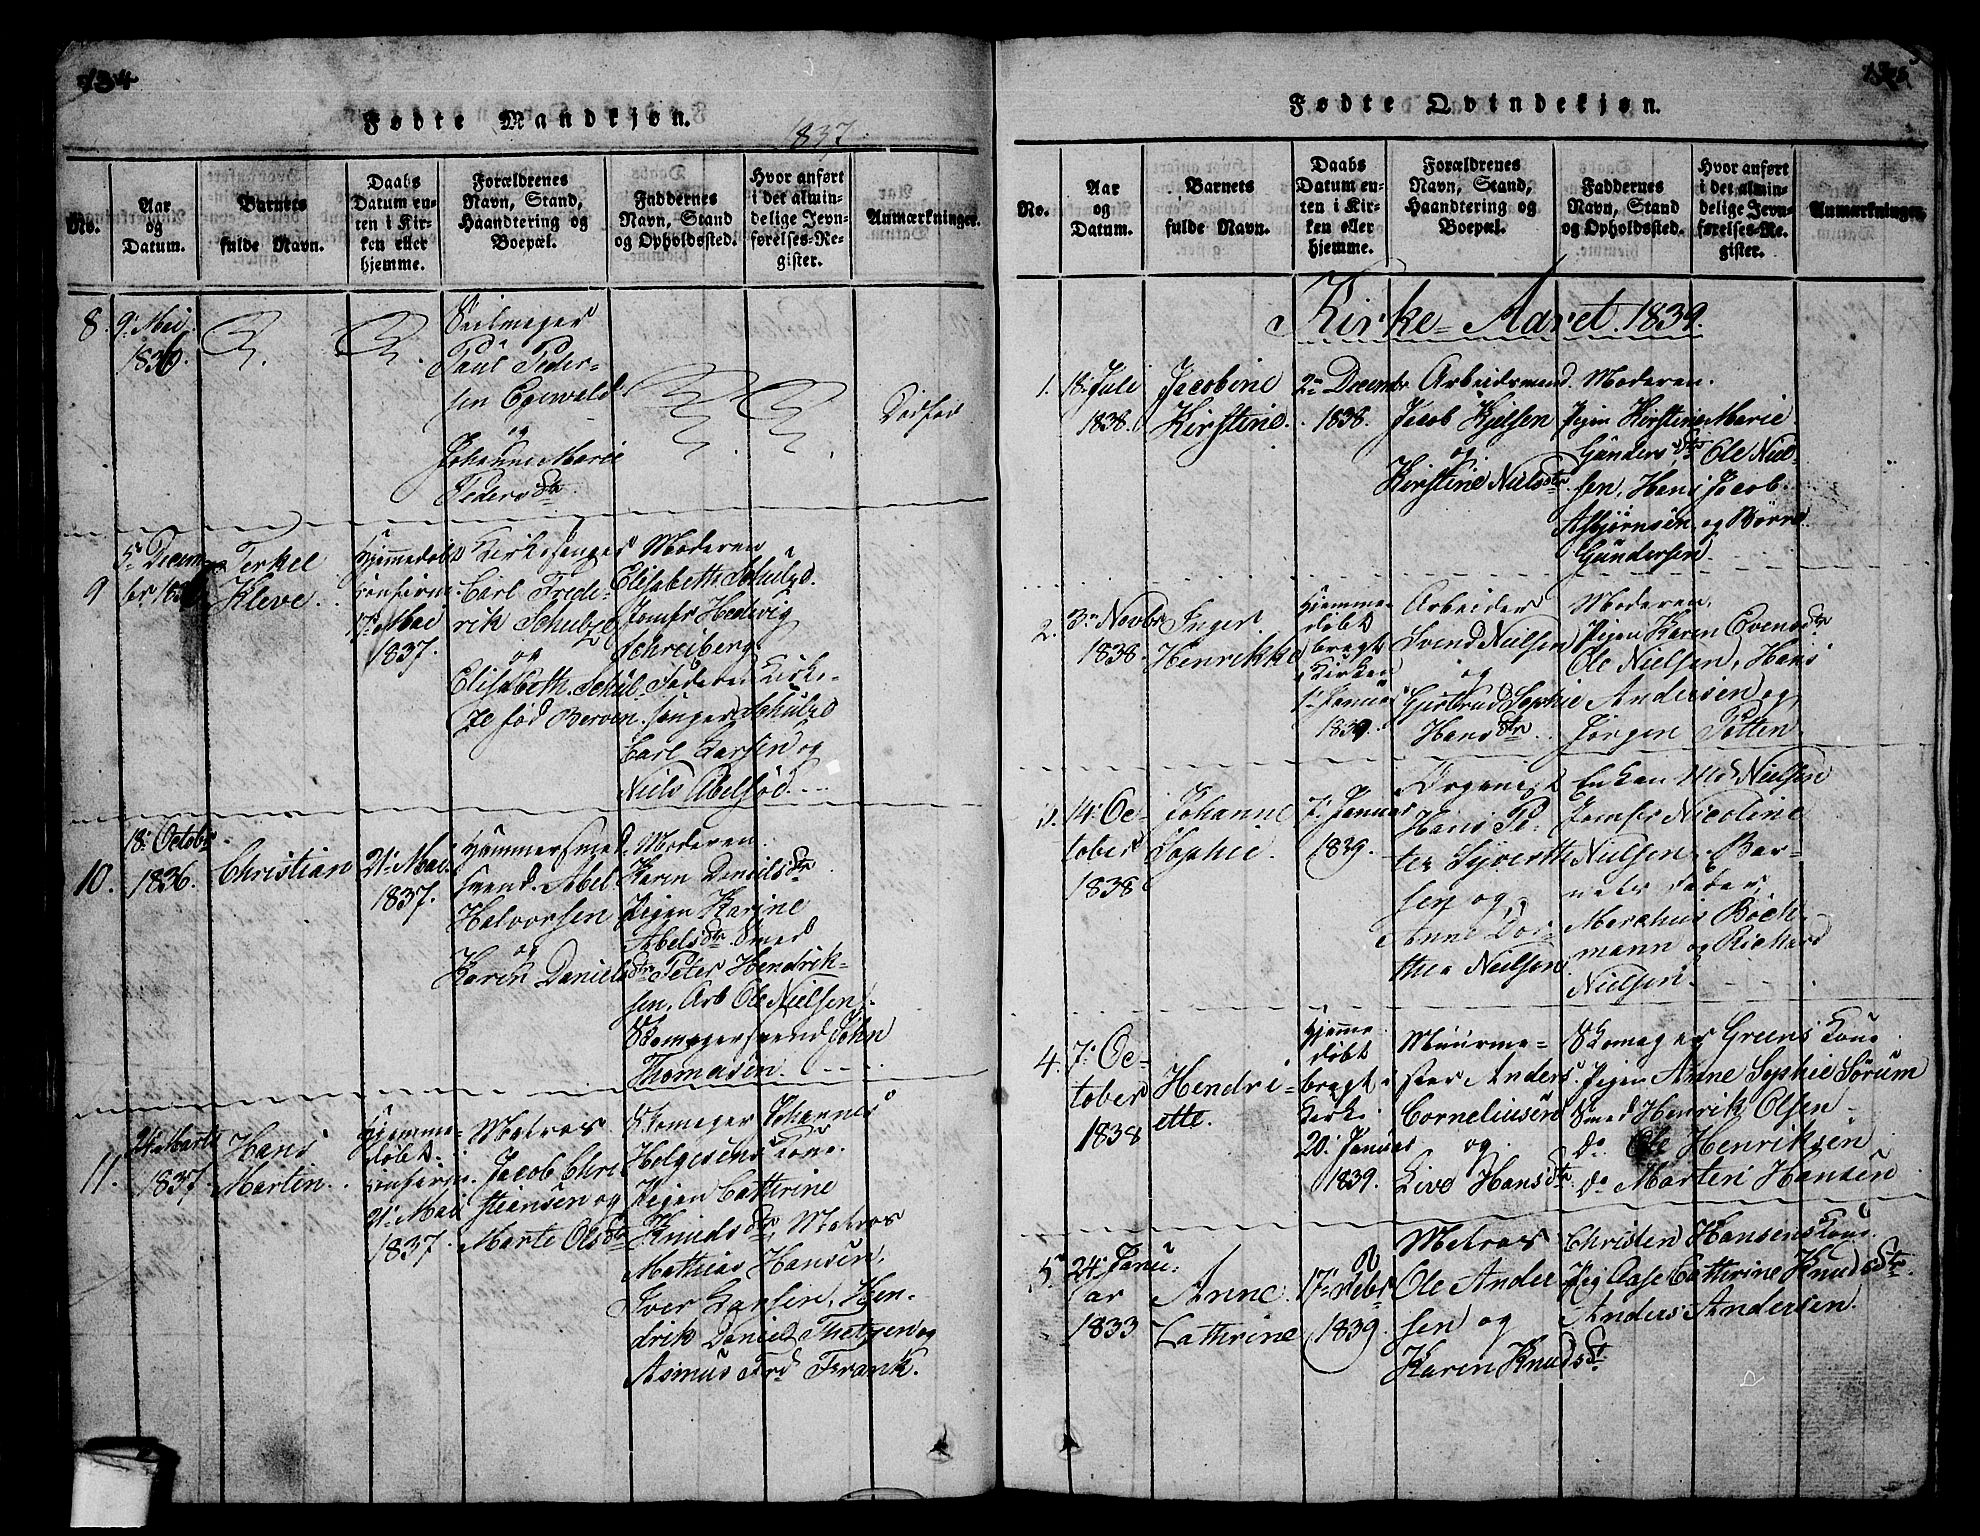 134
Fødte Mandkjøn.
1837.
No.
Aar
og
Datum.
Barnets
fulde Navn.
Daabs
Datum en-
ten i Kir-
ken eller
hjemme.
Forældrenes
Navn, Stand,
Haandtering og
Boepæl.
Faddernes
Navn, Stand
og Opholdssted.
Hvor anført
i det almin-
delige Jevn-
førelses-Re-
gister.
Anmærkninger.
8.
9. Mai
Seilmager
Paul Peder-
sen Egewald
og
Johanne Marie
Peders Dtr.
Dødfød
9
5te Decem-
Terkel
Kleve.
Hjemmedøbt
Confirm.
17de Mai
1837.
Kirkesanger
Carl Frede-
rik Schulze
og
Elisabeth Schul-
ze fød Berven.
Moderen
Elisabeth Schulze.
Jomfr Hedvig
Schreiberg.
Faderen Kirke-
sanger Schulze
Carl Larsen og
Niels Abelsød.
10.
18. Octobr
1836.
Christian
21. Mai
1837.
Hammersmed-
svend Abel
Halvorsen
og
Karen Daniels Dtr
Moderen.
Karen Daniels Dtr.
Pigen Karine
Abels Dtr. Smed
Peter Hendrik-
sen, Arb Ole Nielsen,
Skomagersvend John
Thomasen.
11.
24. Marts
1837
Hans
Martin.
Hjemme-
døbt.
Confirm.
21. Mai
1837.
Matros
Jacob Chri-
stiansen og
Marte Ols Dtr
Skomager Johannes
Holgesens Kone.
Pigen Cathrine
Knuds Dtr, Matros
Mathias Hansen,
Iver Larsen, Hen-
drik Daniel Thetzen og
Asmus Frd Frank.
135
Fødte Qvindekjøn.
No.
Aar
og
Datum.
Barnets
fulde Navn.
Daabs
Datum en-
ten i Kir-
ken eller
hjemme.
Forældrenes
Navn, Stand,
Haandtering og
Boepæl.
Faddernes
Navn, Stand
og Opholdssted.
Hvor anført
i det almin-
delige Jevn-
førelses-Re-
gister.
Anmærkninger.
Kirke-Aaret 1839.
1.
18. Juli
1838.
Jacobine
Kirstine.
2den Decembr
1838.
Arbeidsmand.
Jacob Kjelsen
og
Kirstine Niels Dtr
Moderen.
Pigen Kirstine Marie
Gunders Dtr Ole Niel-
sen, Hans Jacob
Asbjørnsen og Børre
Gundersen
2.
3die Novbr
1838.
Inger
Henrikke
Hjemme-
døbt
bragt
i Kirken
1. Januar
1839.
Arbeider
Svend Nielsen
og
Gjertrud Sophie
Hans Dtr.
Moderen.
Pigen Karen Evens Dtr
Ole Nielsen, Hans
Andersen og
Jørgen Potten
3.
14. Oc-
tober
1838
Johanne
Sophie.
7. Januar
1839.
Organist
Hans Pe-
ter Syvert-
sen og
Anne Dor-
thea Nielsen
Enken Md Nielsen
Jomfr Nicoline
Nielsen. Bar-
nets Fader,
Marthus Bøck-
mann og Richard
Nielsen.
4.
7. Oc-
tober
1838
Hendri-
ette.
Hjemme
døbt
bragt i
Kirke
20. Januar
1839.
Muurme-
ster Anders
Corneliusen
og
Live Hans Dtr
Skomager Greens Kone
Pigen Anne Sophie Sørum
Smed Henrik Olsen
do Ole Henriksen
do Martin Hansen
5.
24. Janu-
ar
1833
Anne
Cathrine
17. Febr
1839.
Matros
Ole Ander
sen og
Karen Knuds Dtr
Christen Hansens Kone
Pig Aase Cathrine Knuds Dtr.
Anders Andersen.